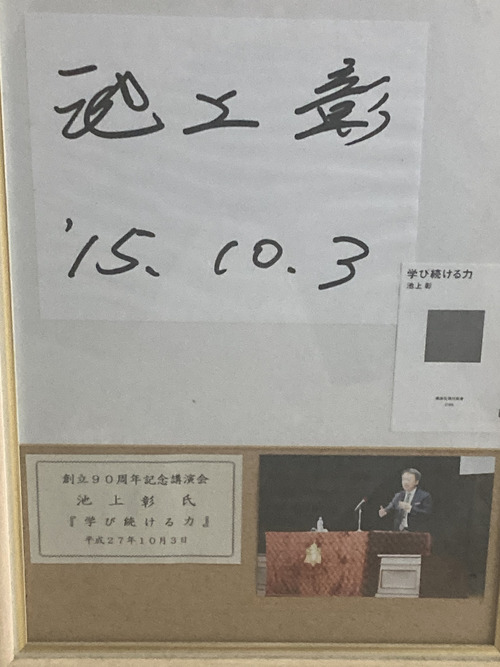 池上彰
'15. 10. 3
学び続ける力
池上 彰
講談社現代新書
創立90周年記念講演会
池上彰氏
『学び続ける力』
平成27年10月3日